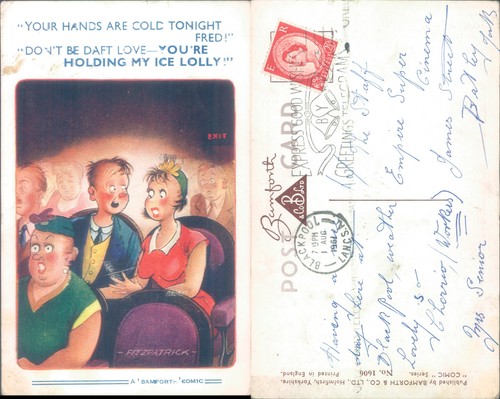 "YOUR HANDS ARE COLD TONIGHT
FRED!"
"DON'T BE DAFT LOVE—YOU'RE
HOLDING MY ICE LOLLY!"
EXIT
-FITZPATRICK-
A "BAMFORTH" COMIC
E R
POST CARD
Bamforth
& Co Ltd
BLACKPOOL
7 15PM
1 AUG
1961
LANCS
BY
GREETINGS TELEGRAM
The Staff
Empire Super Cinema
James Street
Batley
Having a
time here at
Blackpool weather
Lovely so
Cheerio (Workers)
Mrs Senior
Published by BAMFORTH & CO., LTD., Holmfirth, Yorkshire.
"COMIC" Series. No. 1606 Printed in England.